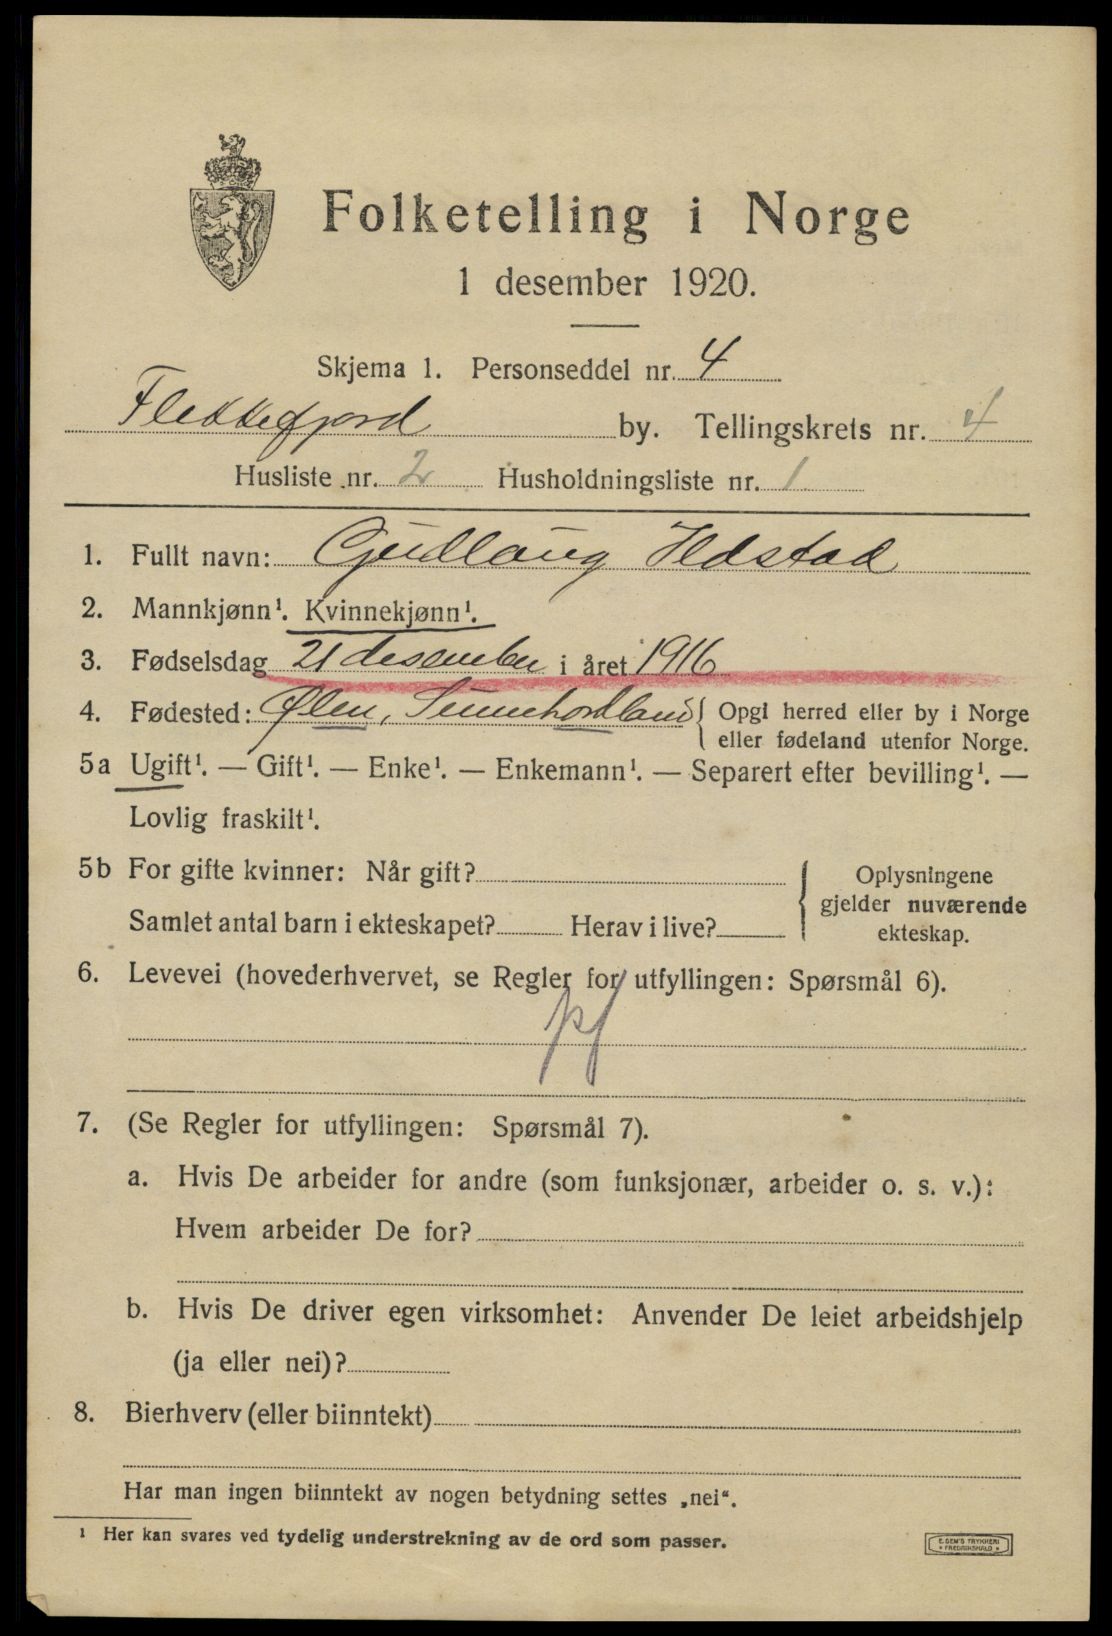 Folketelling i Norge
1 desember 1920.
Skjema 1. Personseddel nr. 4
Flekkefjord by. Tellingskrets nr. 4
Husliste nr. 2 Husholdningsliste nr. 1
1. Fullt navn: Gudlaug Ildstad
2. Mannkjønn¹. Kvinnekjønn¹.
3. Fødselsdag 21 desember i året 1916
4. Fødested: Ølen, Sunnhordland { Opgi herred eller by i Norge
eller fødeland utenfor Norge.
5a Ugift¹. — Gift¹. — Enke¹. — Enkemann¹. — Separert efter bevilling¹. —
Lovlig fraskilt¹.
5b For gifte kvinner: Når gift?
Samlet antal barn i ekteskapet? Herav i live?
{ Oplysningene
gjelder nuværende
ekteskap.
6. Levevei (hovederhvervet, se Regler for utfyllingen: Spørsmål 6).
pf
7. (Se Regler for utfyllingen: Spørsmål 7).
a. Hvis De arbeider for andre (som funksjonær, arbeider o. s. v.):
Hvem arbeider De for?
b. Hvis De driver egen virksomhet: Anvender De leiet arbeidshjelp
(ja eller nei)?
8. Bierhverv (eller biinntekt)
Har man ingen biinntekt av nogen betydning settes „nei“.
¹ Her kan svares ved tydelig understrekning av de ord som passer.
E. SEM'S TRYKKERI
FREDRIKSHALD